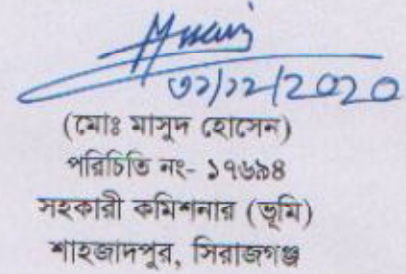 ৩১/১২/2020
(মোঃ মাসুদ হোসেন)
পরিচিতি নং- ১৭৬৯৪
সহকারী কমিশনার (ভূমি)
শাহজাদপুর, সিরাজগঞ্জ